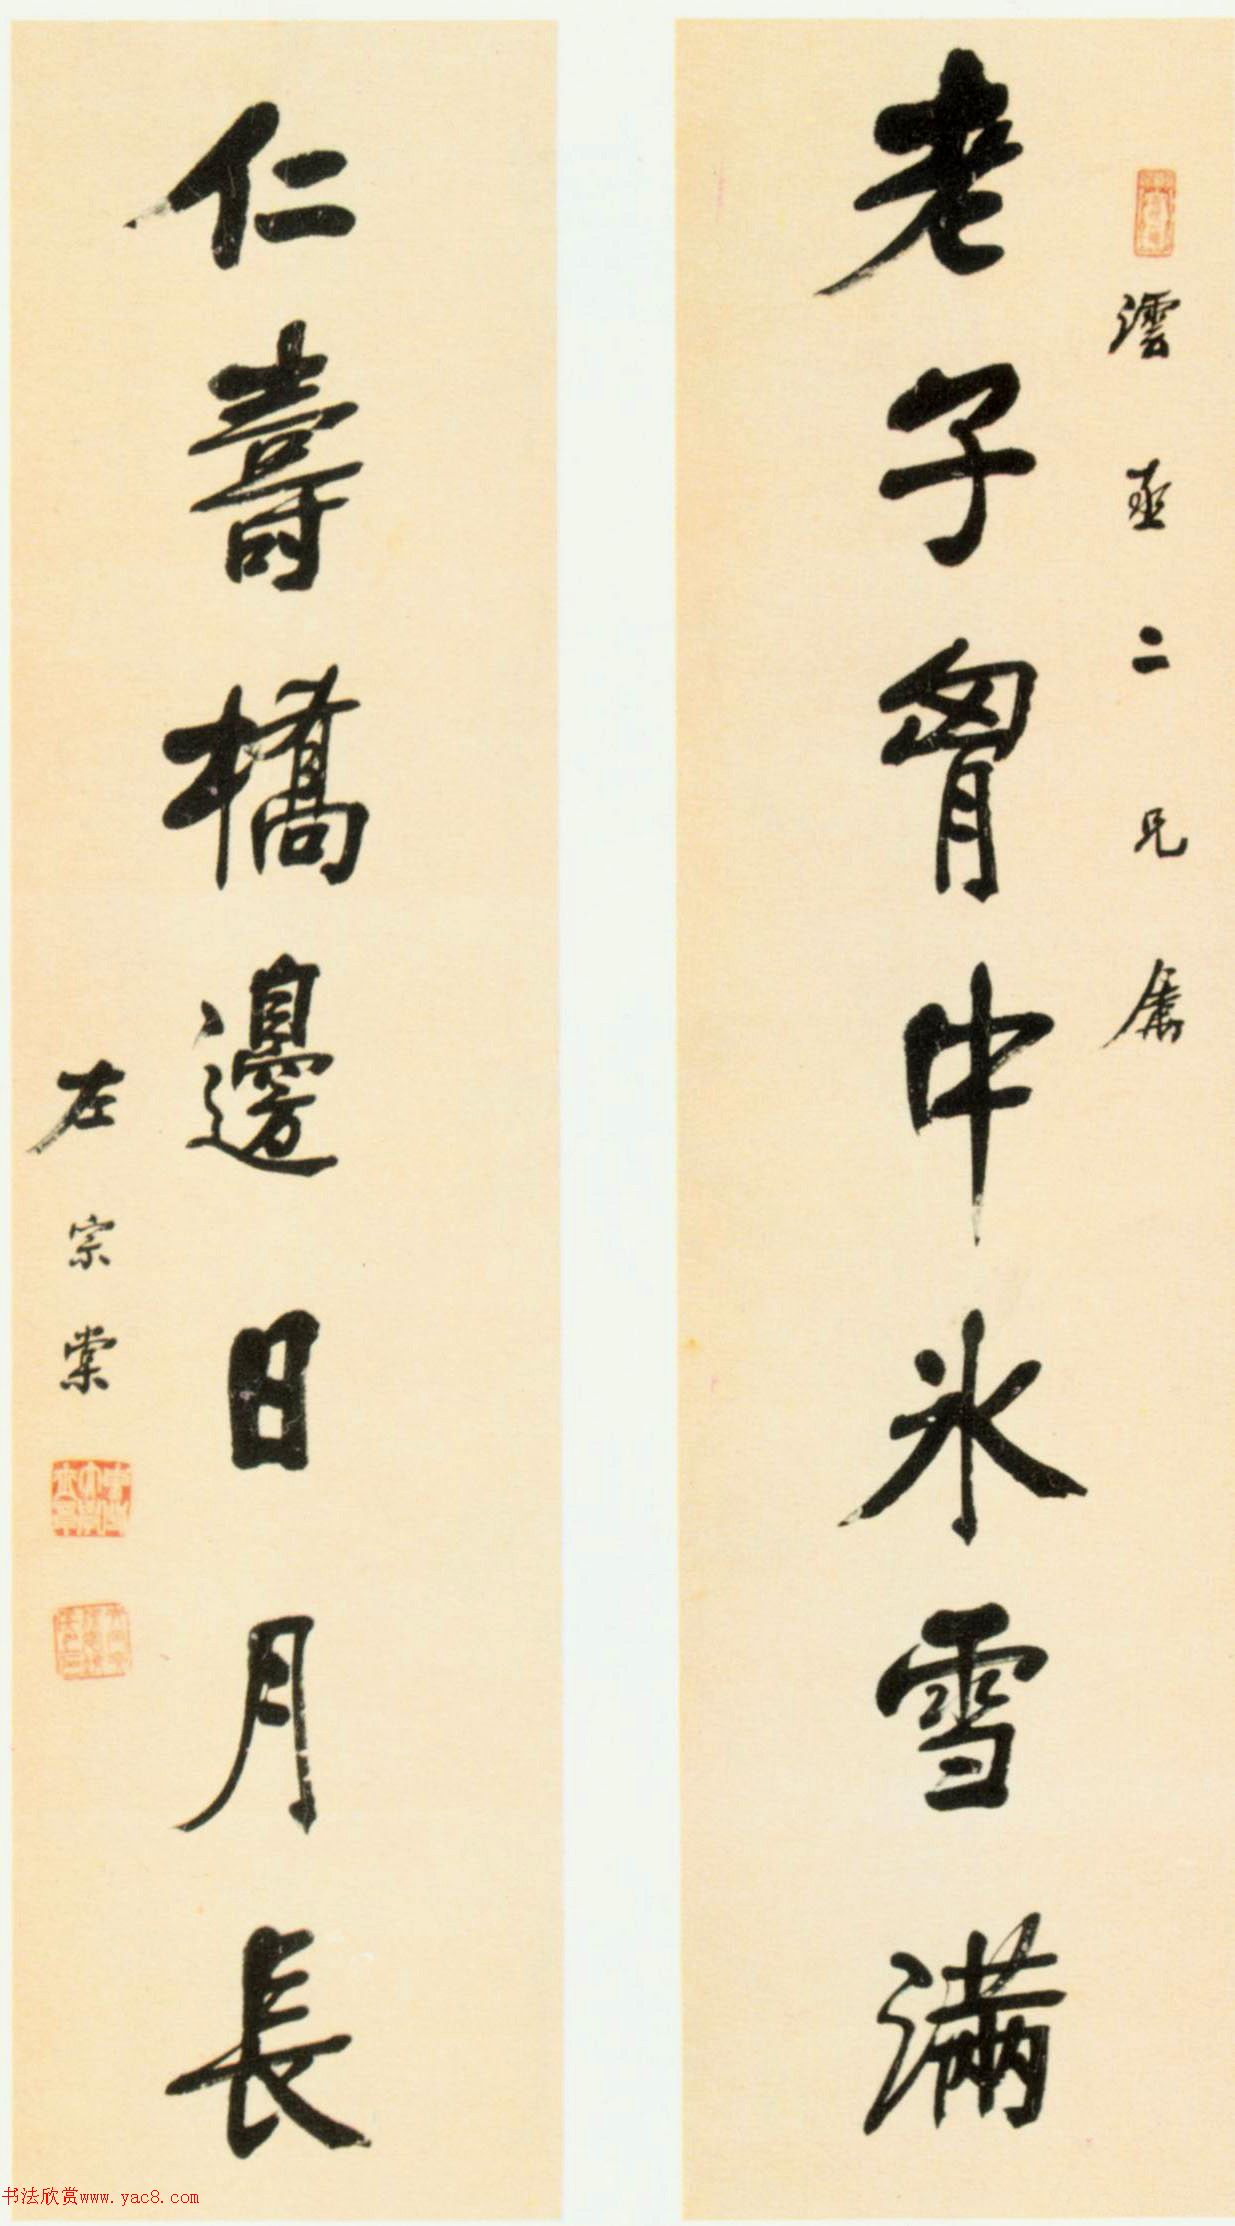 澐亟二兄屬
老子胷中冰雪滿
仁壽橋邊日月長
左宗棠
书法欣赏www.yac8.com